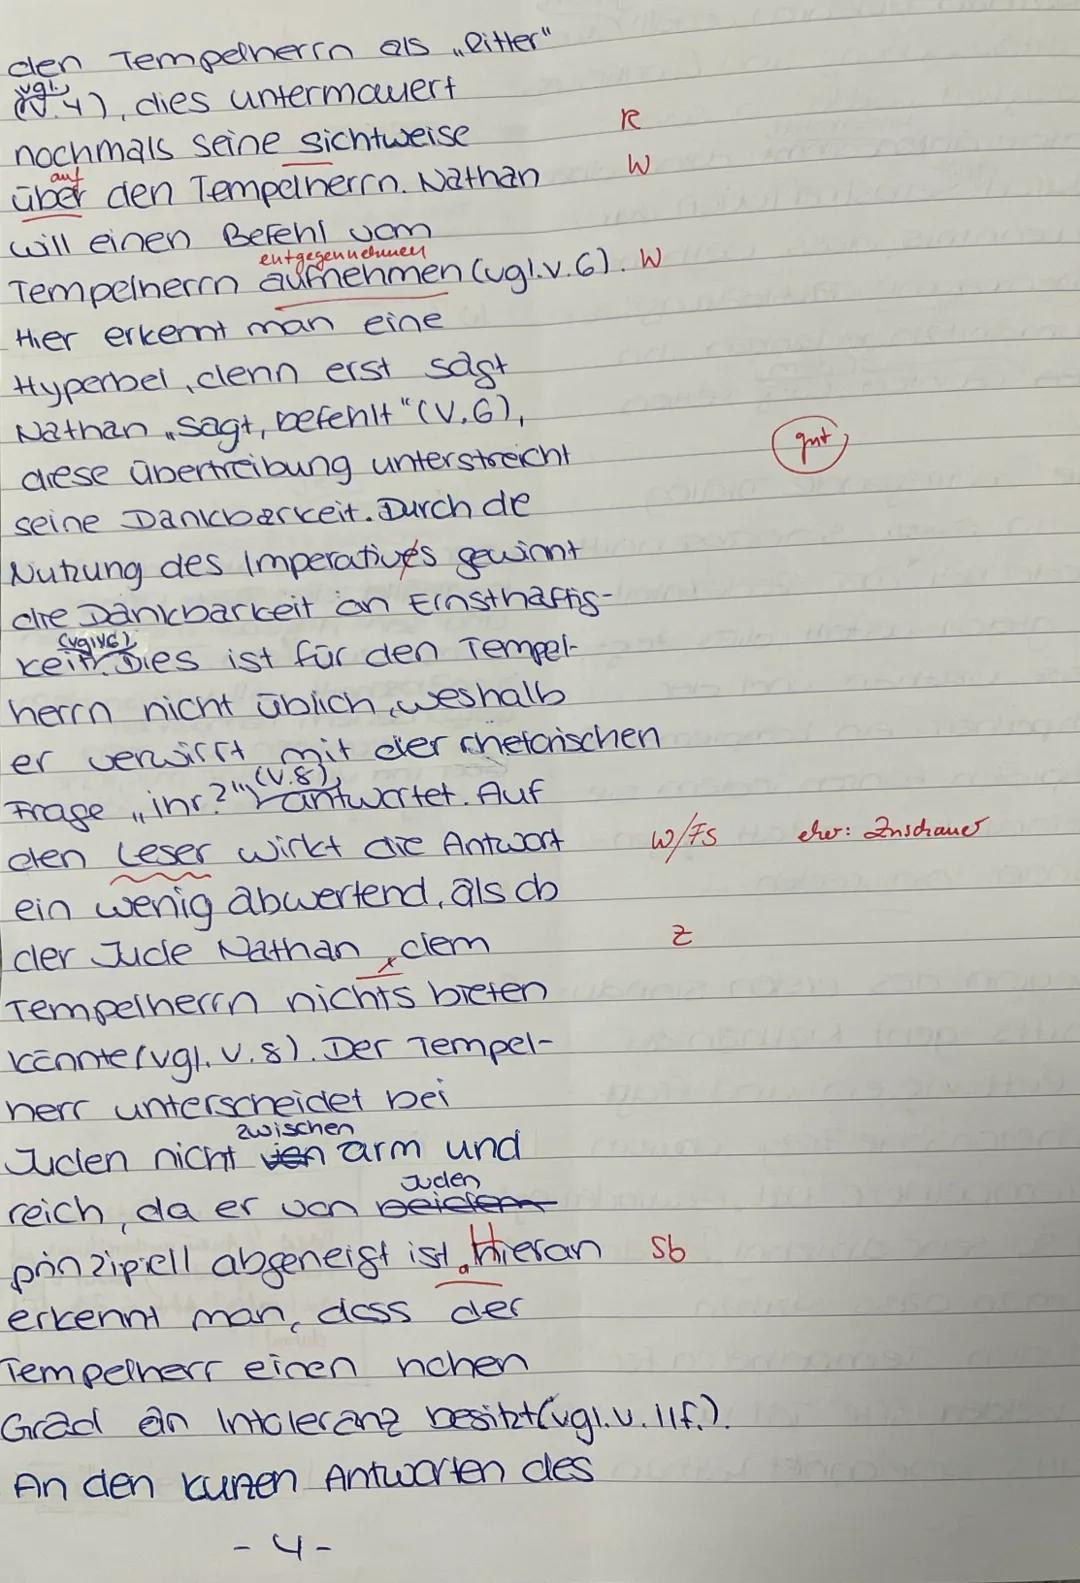 den Tempelherrn als „Ritter"
(vgl. V. 4), dies untermauert
nochmals seine Sichtweise R
auf
über den Tempelherrn. Nathan W
will einen Befehl vom
entgegennehmen
Tempelherrn aufnehmen (vgl. V. 6). W
Hier erkennt man eine
Hyperbel, denn erst sagt
Nathan „Sagt, befehlt" (V. 6),
diese Übertreibung unterstreicht gut
seine Dankbarkeit. Durch de
Nutzung des Imperatives gewinnt
die Dankbarkeit an Ernsthaftig-
(vgl V6)
keit. Dies ist für den Tempel-
herrn nicht üblich, weshalb
er verwirrt mit der rhetorischen
Frage „ihr?" (V. 8), antwortet. Auf
den Leser wirkt die Antwort W/FS eher: Zuschauer
ein wenig abwertend, als ob
der Jude Nathan, dem Z
Tempelherrn nichts bieten
könnte (vgl. V. 8). Der Tempel-
herr unterscheidet bei
zwischen
Juden nicht von arm und
Juden
reich, da er von beiden
prinzipiell abgeneigt ist. Hieran Sb
erkennt man, dass der
Tempelherr einen hohen
Grad an Intoleranz besitzt (vgl. V. 11f.).
An den kurzen Antworten des
- 4 -